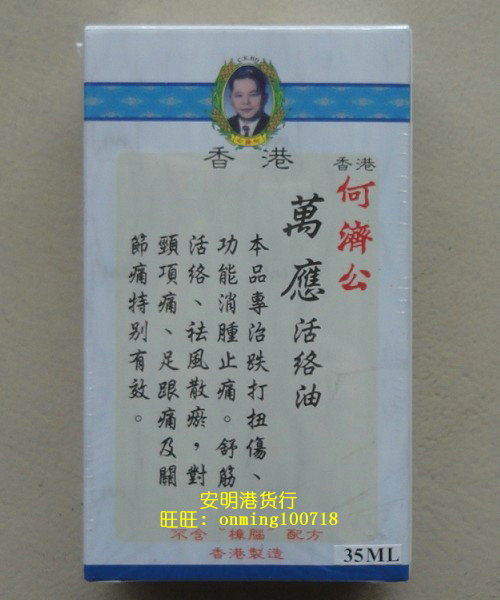 C.K.HO
香港
香港
何濟公
萬應活络油
本品專治跌打扭傷、
功能消腫止痛。舒筋
活络、祛風散瘀，對
頸項痛、足跟痛及關
節痛特别有效。
安明港货行
旺旺：onming100718
不含“樟腦”配方
香港製造
35ML